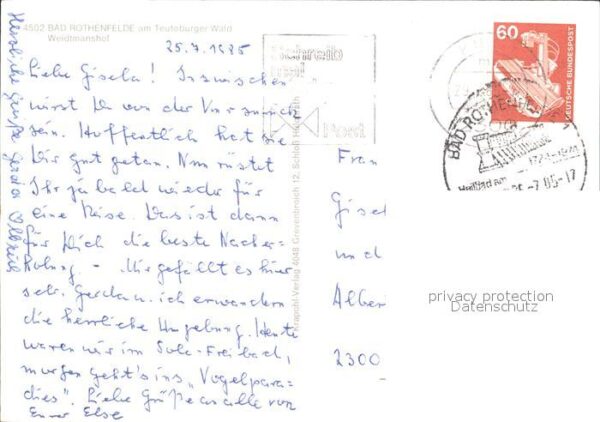 4502 BAD ROTHENFELDE am Teuteburger Wald
Weidtmanshof
25.7.1985
Liebe Gisela! Inzwischen
wirst Du von der Kur zurück
sein. Hoffentlich hat sie
Dir gut getan. Nun rüstet
Ihr ja bald wieder für
eine Reise. Das ist dann
für Dich die beste Nacher-
holung – Mir gefällt es hier
sehr. Gerda u. ich erwandern
die herrliche Umgebung. Heute
waren wir im Sole-Freibad,
morgen geht's ins "Vogelpara-
dies". Liebe Grüße an alle von
Eurer Else
Herzliche Grüße Gerda
Krapohl-Verlag 4048 Grevenbroich 12, Schloß Hülchrath
Schreib
mal
Post
60
DEUTSCHE BUNDESPOST
BAD ROTHENFELDE
-7.85-17
Frau
Gisel
und
Alber
2300
privacy protection
Datenschutz